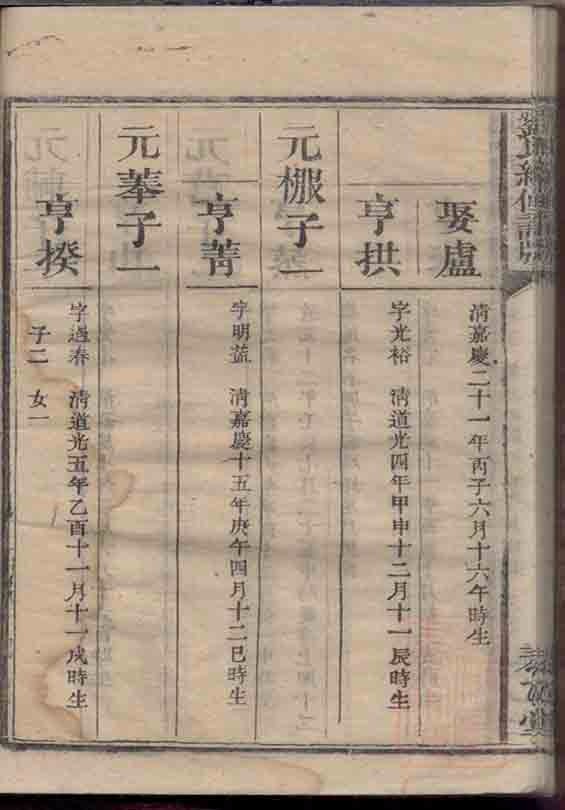 娶盧
清嘉慶二十一年丙子六月十六午時生
亨拱
字光裕 清道光四年甲申十二月十一辰時生
元棴子一
亨菁
字明藍 清嘉慶十五年庚午四月十二巳時生
元菶子一
亨揆
字遇春 清道光五年乙酉十一月十一戌時生
子二 女一